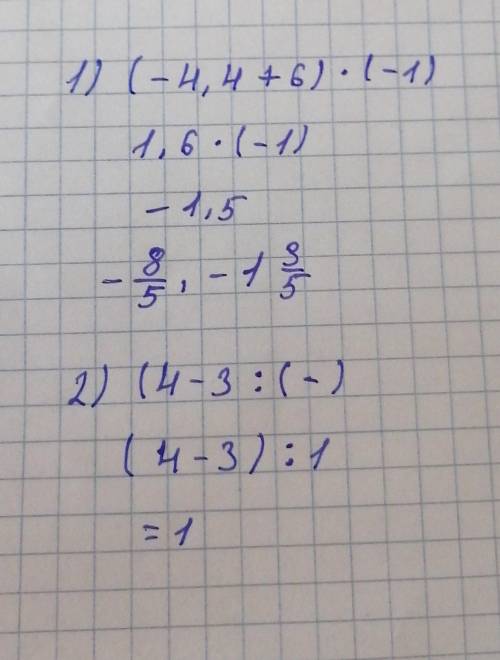 1) (-4,4+6)·(-1)
1,6·(-1)
-1,5
-8/5, -1 3/5
2) (4-3:(-)
(4-3):1
=1